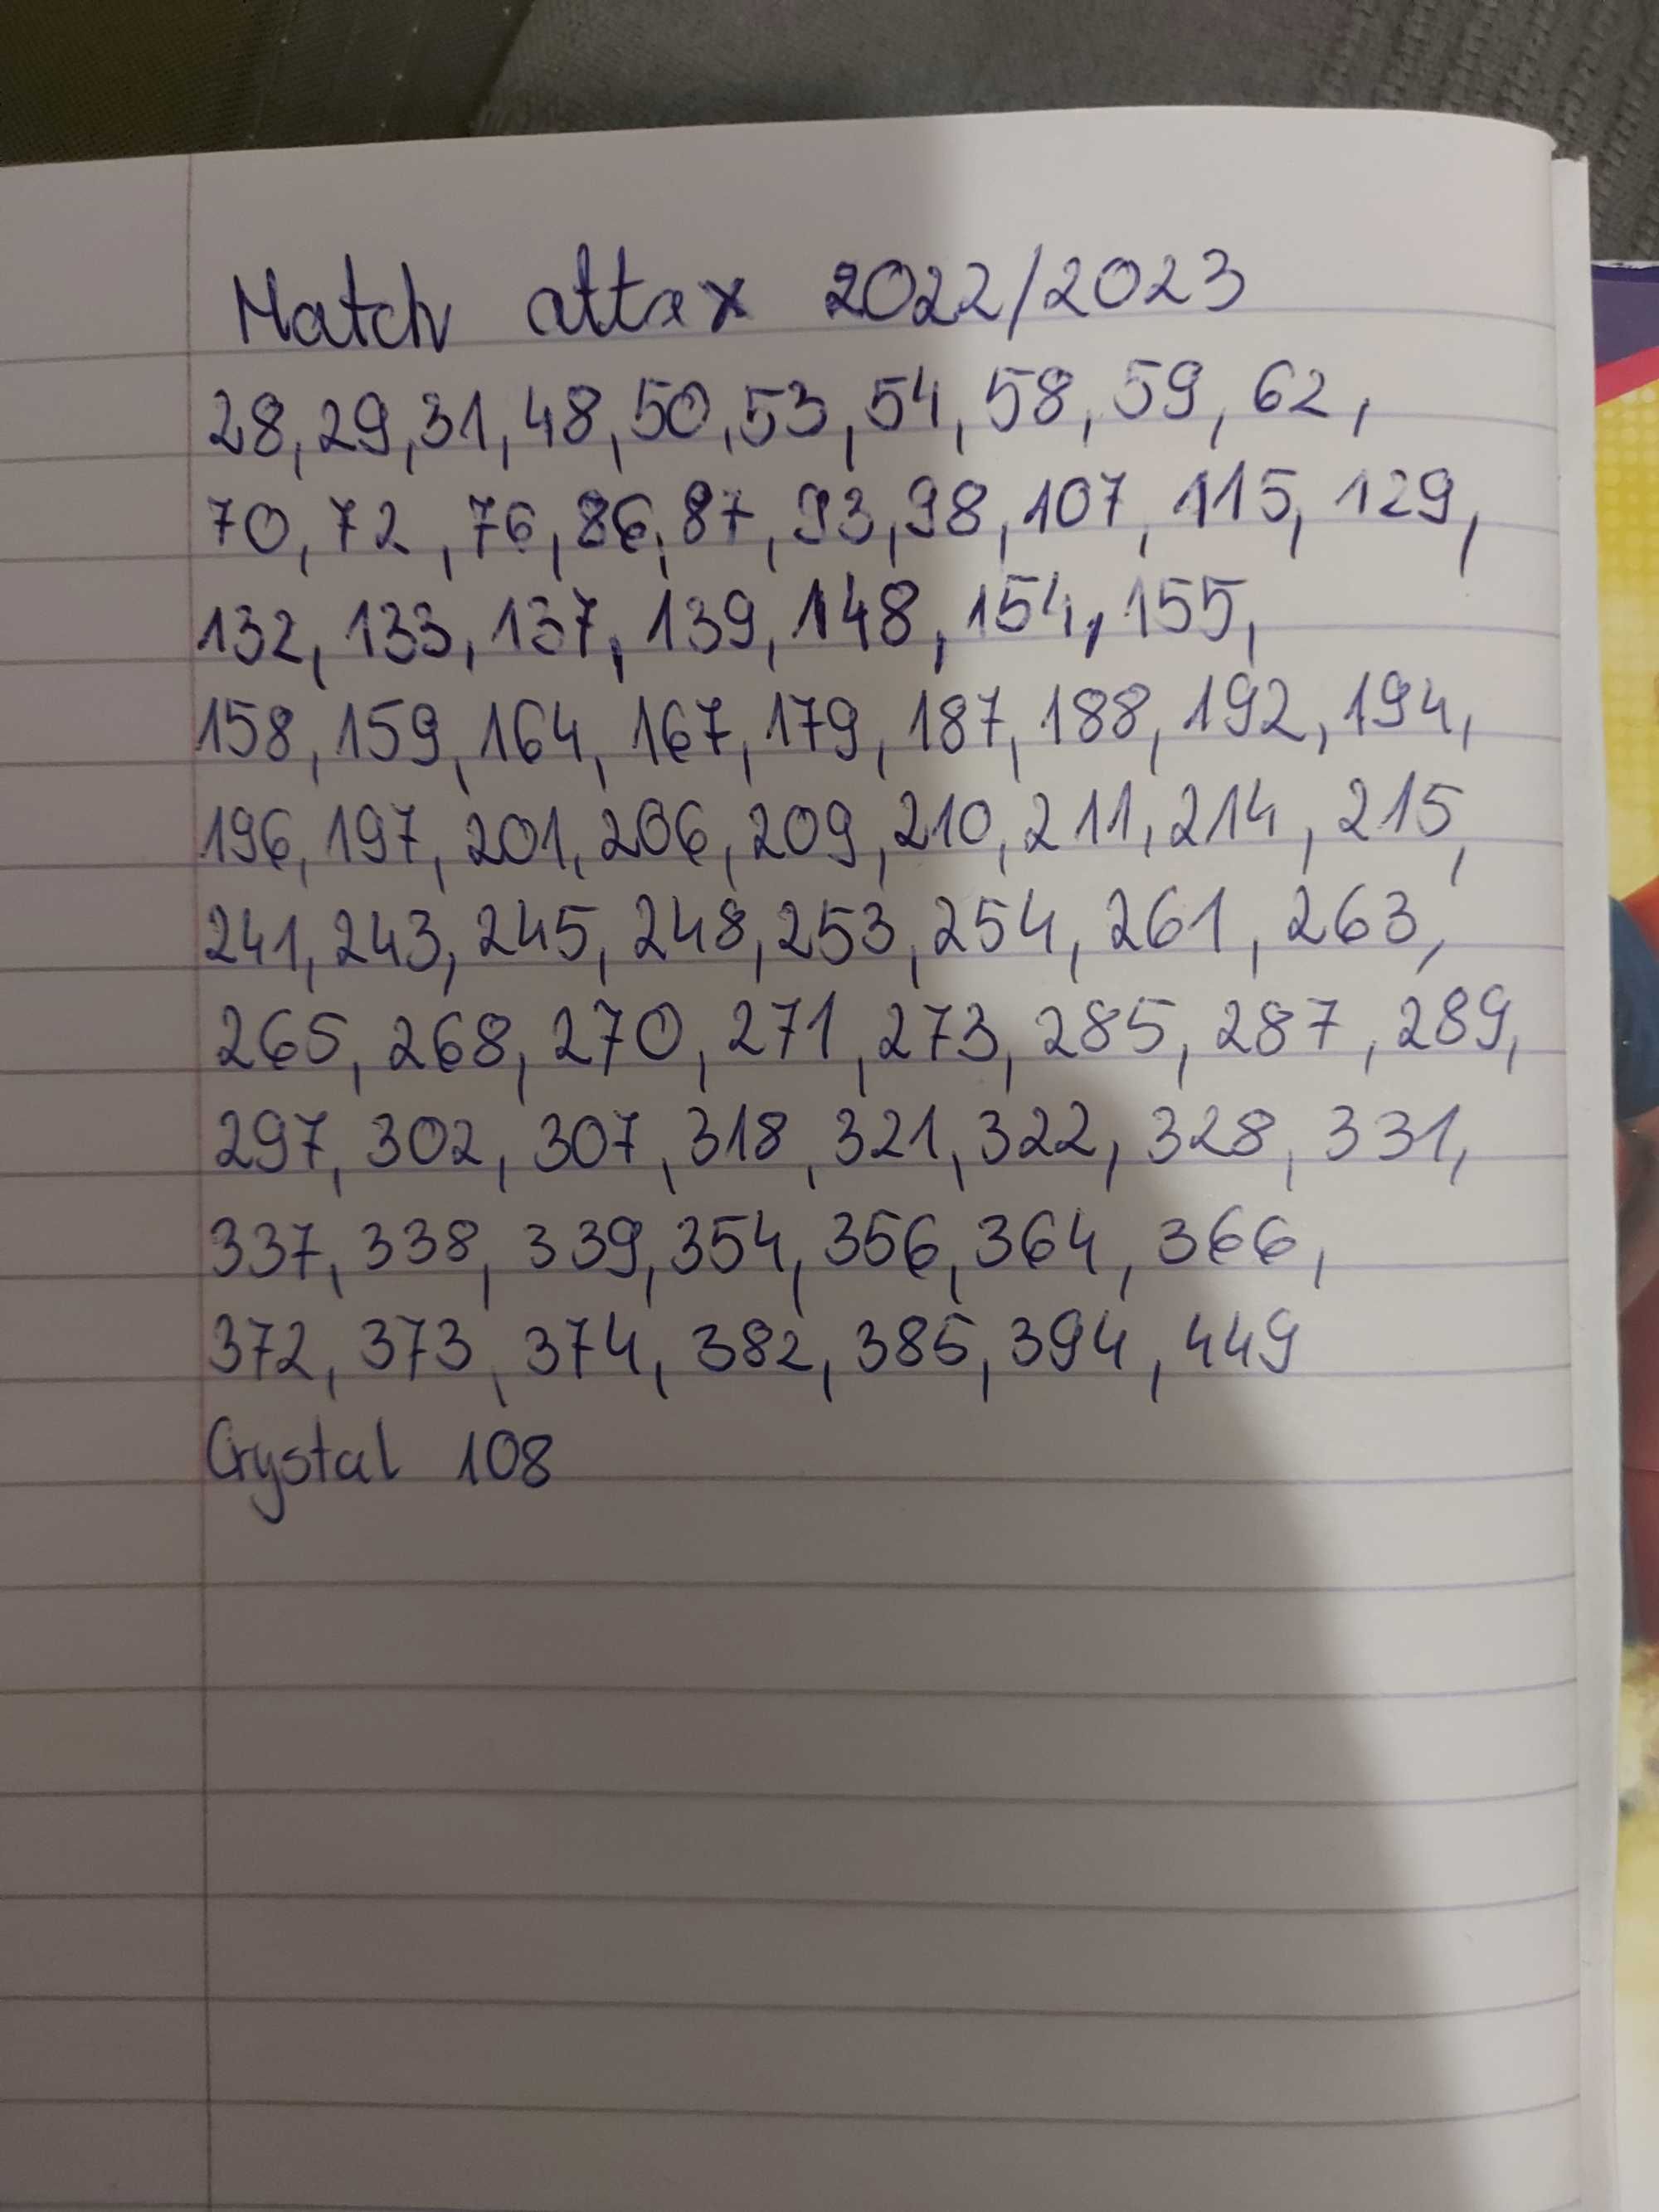 Match attax 2022/2023
28, 29, 31, 48, 50, 53, 54, 58, 59, 62,
70, 72, 76, 86, 87, 93, 98, 107, 115, 129,
132, 133, 137, 139, 148, 154, 155,
158, 159, 164, 167, 179, 187, 188, 192, 194,
196, 197, 201, 206, 209, 210, 211, 214, 215,
241, 243, 245, 248, 253, 254, 261, 263,
265, 268, 270, 271, 273, 285, 287, 289,
297, 302, 307, 318, 321, 322, 328, 331,
337, 338, 339, 354, 356, 364, 366,
372, 373, 374, 382, 385, 394, 449
Crystal 108